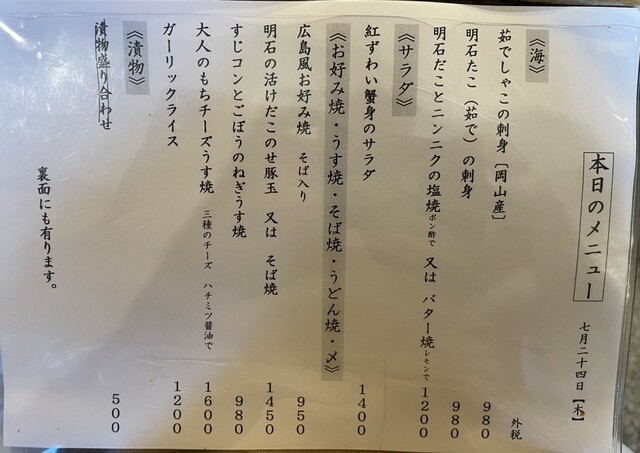 本日のメニュー
七月二十四日【木】
外税
《海》
茹でしゃこの刺身［岡山産］ 980
明石たこ（茹で）の刺身 980
明石だことニンニクの塩焼ポン酢で 又は バター焼レモンで 1200
《サラダ》
紅ずわい蟹身のサラダ 1400
《お好み焼・うす焼・そば焼・うどん焼・〆》
広島風お好み焼 そば入り 950
明石の活けだこのせ豚玉 又は そば焼 1450
すじコンとごぼうのねぎうす焼 980
大人のもちチーズうす焼 三種のチーズ ハチミツ醤油で 1600
ガーリックライス 1200
《漬物》
漬物盛り合わせ 500
裏面にも有ります。